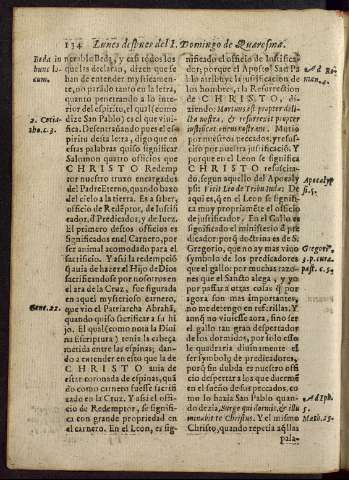 134 Lunes despues del I. Domingo de Quaresma.
Beda in
hunc lo-
cum.
2. Corin-
tho. c. 3.
Gene. 22.
nerable Beda, y casi todos los
que las declaran, dizen que se
han de entender mysticamen-
te, no parādo tanto en la letra,
quanto penetrando a lo inte-
rior del espiritu, el qual (como
dize San Pablo) es el que viui-
fica. Desentrañando pues el es-
piritu desta letra, digo que en
estas palabras quiso significar
Salomon quatro officios que
CHRISTO Redemp-
tor nuestro truxo encargados
del Padre Eterno, quando baxo
del cielo a la tierra. Es a saber,
oficio de Redēptor, de Iustifi-
cador, de Predicador, y de Iuez.
El primero destos officios es
significado en el Carnero, por
ser animal acomodado para el
sacrificio. Y assi la redempciō
q̄ auia de hazer el Hijo de Dios
sacrificandose por nosotros en
el ara de la Cruz, fue figurada
en aquel mysterioso carnero,
que vio el Patriarcha Abrahā,
quando quiso sacrificar a su hi
jo. El qual (como nota la Diui
na Escriptura) tenia la cabeça
metida entre las espinas; dan-
do a entender en esto que la de
CHRISTO auia de
estar coronada de espinas, quā
do como carnero fuesse sacrifi
cado en la Cruz. Y assi el offi-
cio de Redemptor, se signifi-
ca con grande propriedad en
el carnero. En el Leon, es sig-
nificado el officio de Iustifica-
dor; porque el Apostol San Pa
blo atribuye la justificacion de
los hombres, a la Resurrection
de CHRISTO, di-
ziendo: Mortuus est propter deli-
cta nostra, & resurrexit propter
iustificationem nostram. Murio
por nuestros peccados; y resus-
cito por nuestra justificaciō. Y
porque en el Leon se significa
CHRISTO resuscita-
do, segun aquello del Apocaly
psi: Vicit Leo de Tribu Iuda: De
aqui es, q̄ en el Leon se signifi-
ca muy propriamēte el officio
de justificador. En el Gallo es
significado el ministerio d̄ pre
dicador: porq̄ doctrina es de S.
Gregorio, que no ay mas viuo
symbolo de los predicadores
que el gallo: por muchas razo-
nes que el Sancto alega, y yo
por passar a otras cosas q̄ por
agora son mas importantes,
no me detengo en referillas. Y
aunq̄ no vuiesse otra, sino ser
el gallo tan gran despertador
de los dormidos, por solo esso
le quadraria diuinamente el
ser symbolo de predicadores,
porq̄ sin dubda es nuestro offi
cio despertar a los que duermē
en el sueño de sus peccados. co
mo lo hazia San Pablo quan-
do dezia, Surge qui dormis, & illu
minabit te Christus. Y el mismo
Christo, quando repetia aq̄llas
pala-
Ad Ro
man. 4.
Apocaly
psi. 5.
Gregori.
3. p. cura
past. c. 5.
Ad Eph.
5.
Math. 25.